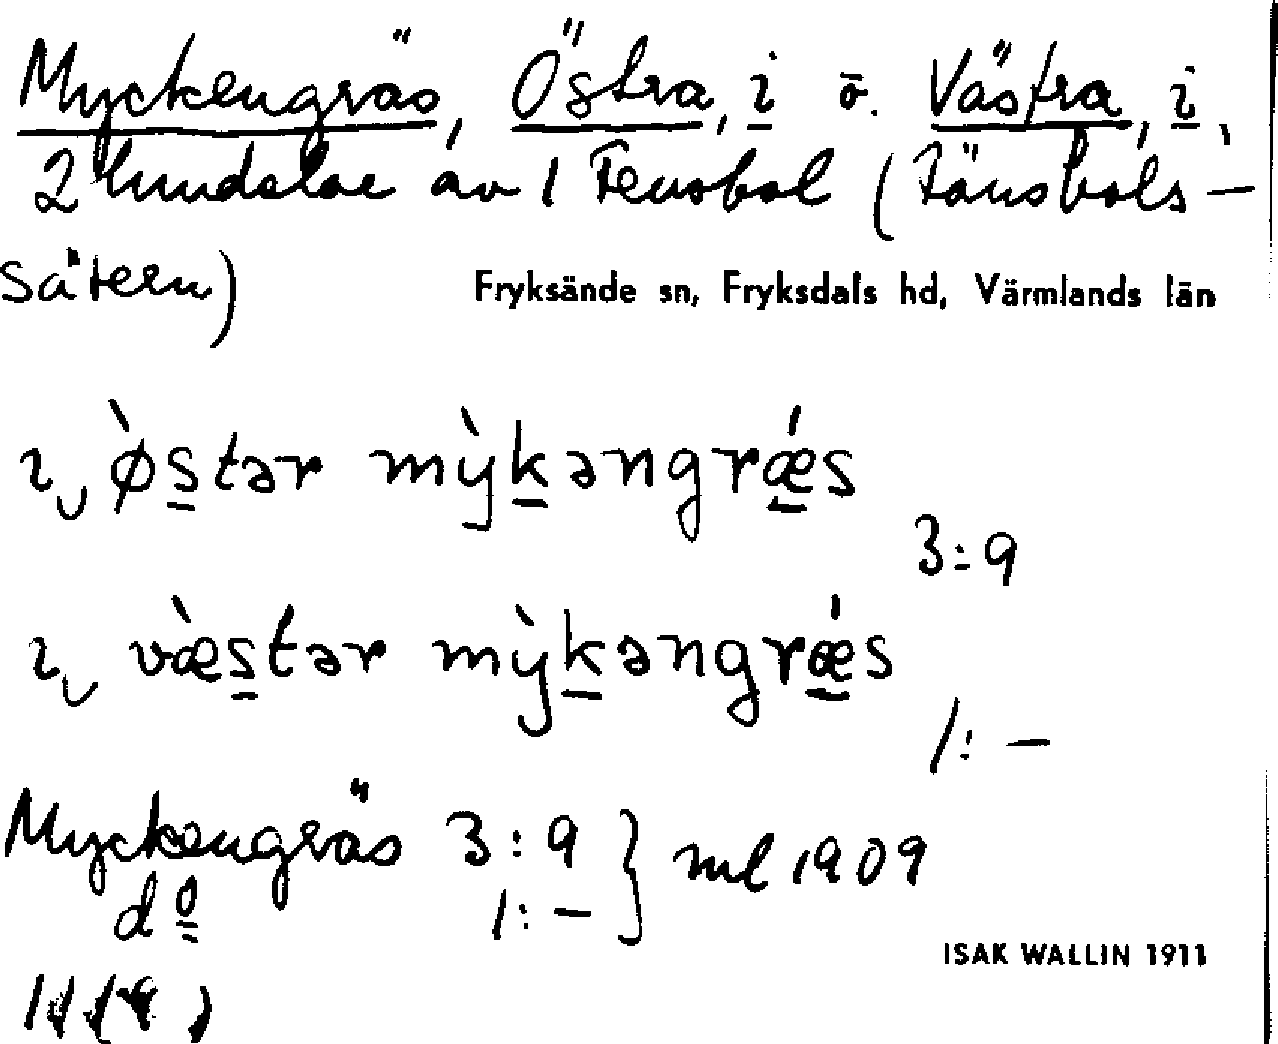 Myckengräs, Östra, i o. Västra, i,
2 hmdelar av 1 Fensbol (Fänsbols-
sätern)
Fryksände sn, Fryksdals hd, Värmlands län
ı østər mỳkəngrǽs
3:9
ı væstər mỳkəngrǽs
1: —
Myckengräs 3:9 } ml 1909
do 1: —
ISAK WALLIN 1911